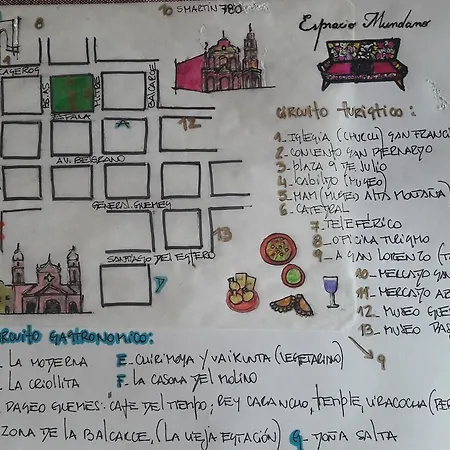 10 SMARTIN 780
8
Espacio Mundano
CASEROS
BS AS
MITRE
BALCARCE
ESPAÑA
A
12
AV. BELGRANO
GENERAL GUEMES
13
SANTIAGO DEL ESTERO
CIRCUITO TURISTICO:
1_ IGLESIA (CHUCU) SAN FRANCI
2_ CONVENTO SAN BERNARDO
3_ PLAZA 9 DE JULIO
4_ CABILDO (MUSEO)
5_ MAM (MUSEO ALTA MONTAÑA)
6_ CATEDRAL
7_ TELEFÉRICO
8_ OFICINA TURISMO
9_ A SAN LORENZO (T
10_ MERCADO SAN
11_ MERCADO AR
12_ MUSEO GUE
13_ MUSEO PAS
9
IRCUITO GASTRONOMICO:
LA MODERNA
LA CRIOLLITA
E_ CHIRIMOYA Y VAIKUNTA (VEGETARINO)
F_ LA CASONA DEL MOLINO
PASEO GUEMES: CAFE DEL TIEMPO; REY CARANCHO, TEMPLE, VIRACOCHA (PER
ZONA DE LA BALCARCE, (LA VIEJA ESTACIÓN) G_ DOÑA SALTA